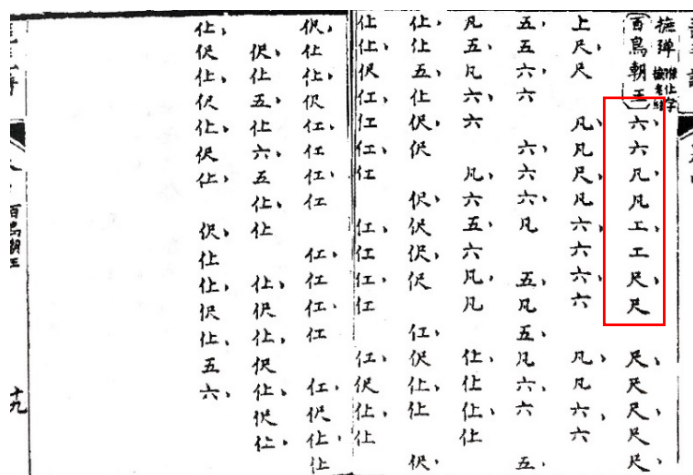 撫彈
百鳥朝王 六、六凡、凡工、工尺、尺 尺、尺尺、尺尺、
上尺、尺 凡、凡尺、凡六、六六、六 凡、凡六、六
五、五六、六 六、六、凡 五、凡五、凡六、六 五、
凡五、凡六、六 凡、六五、六凡、凡 仩、仩仩、仩
仩、仩五、仩伬、伬 伬、伬伬、伬 仜、伬仩、仩 伬、
仩仩、伬仜、仜仜、仜 仜、仜仜、仜 仜、伬仩、仩
伬、仩仩、伬仜、仜仜、仜 仜、仜仜、仜 仜、伬仩、仩
伬、仩五、仩六、五仩、仩 仩、伬仩、伬仩、伬仩、
仩、伬仩、伬仩、伬仩、 伬、仩仩、伬仩、五六、
百鳥朝王 十九